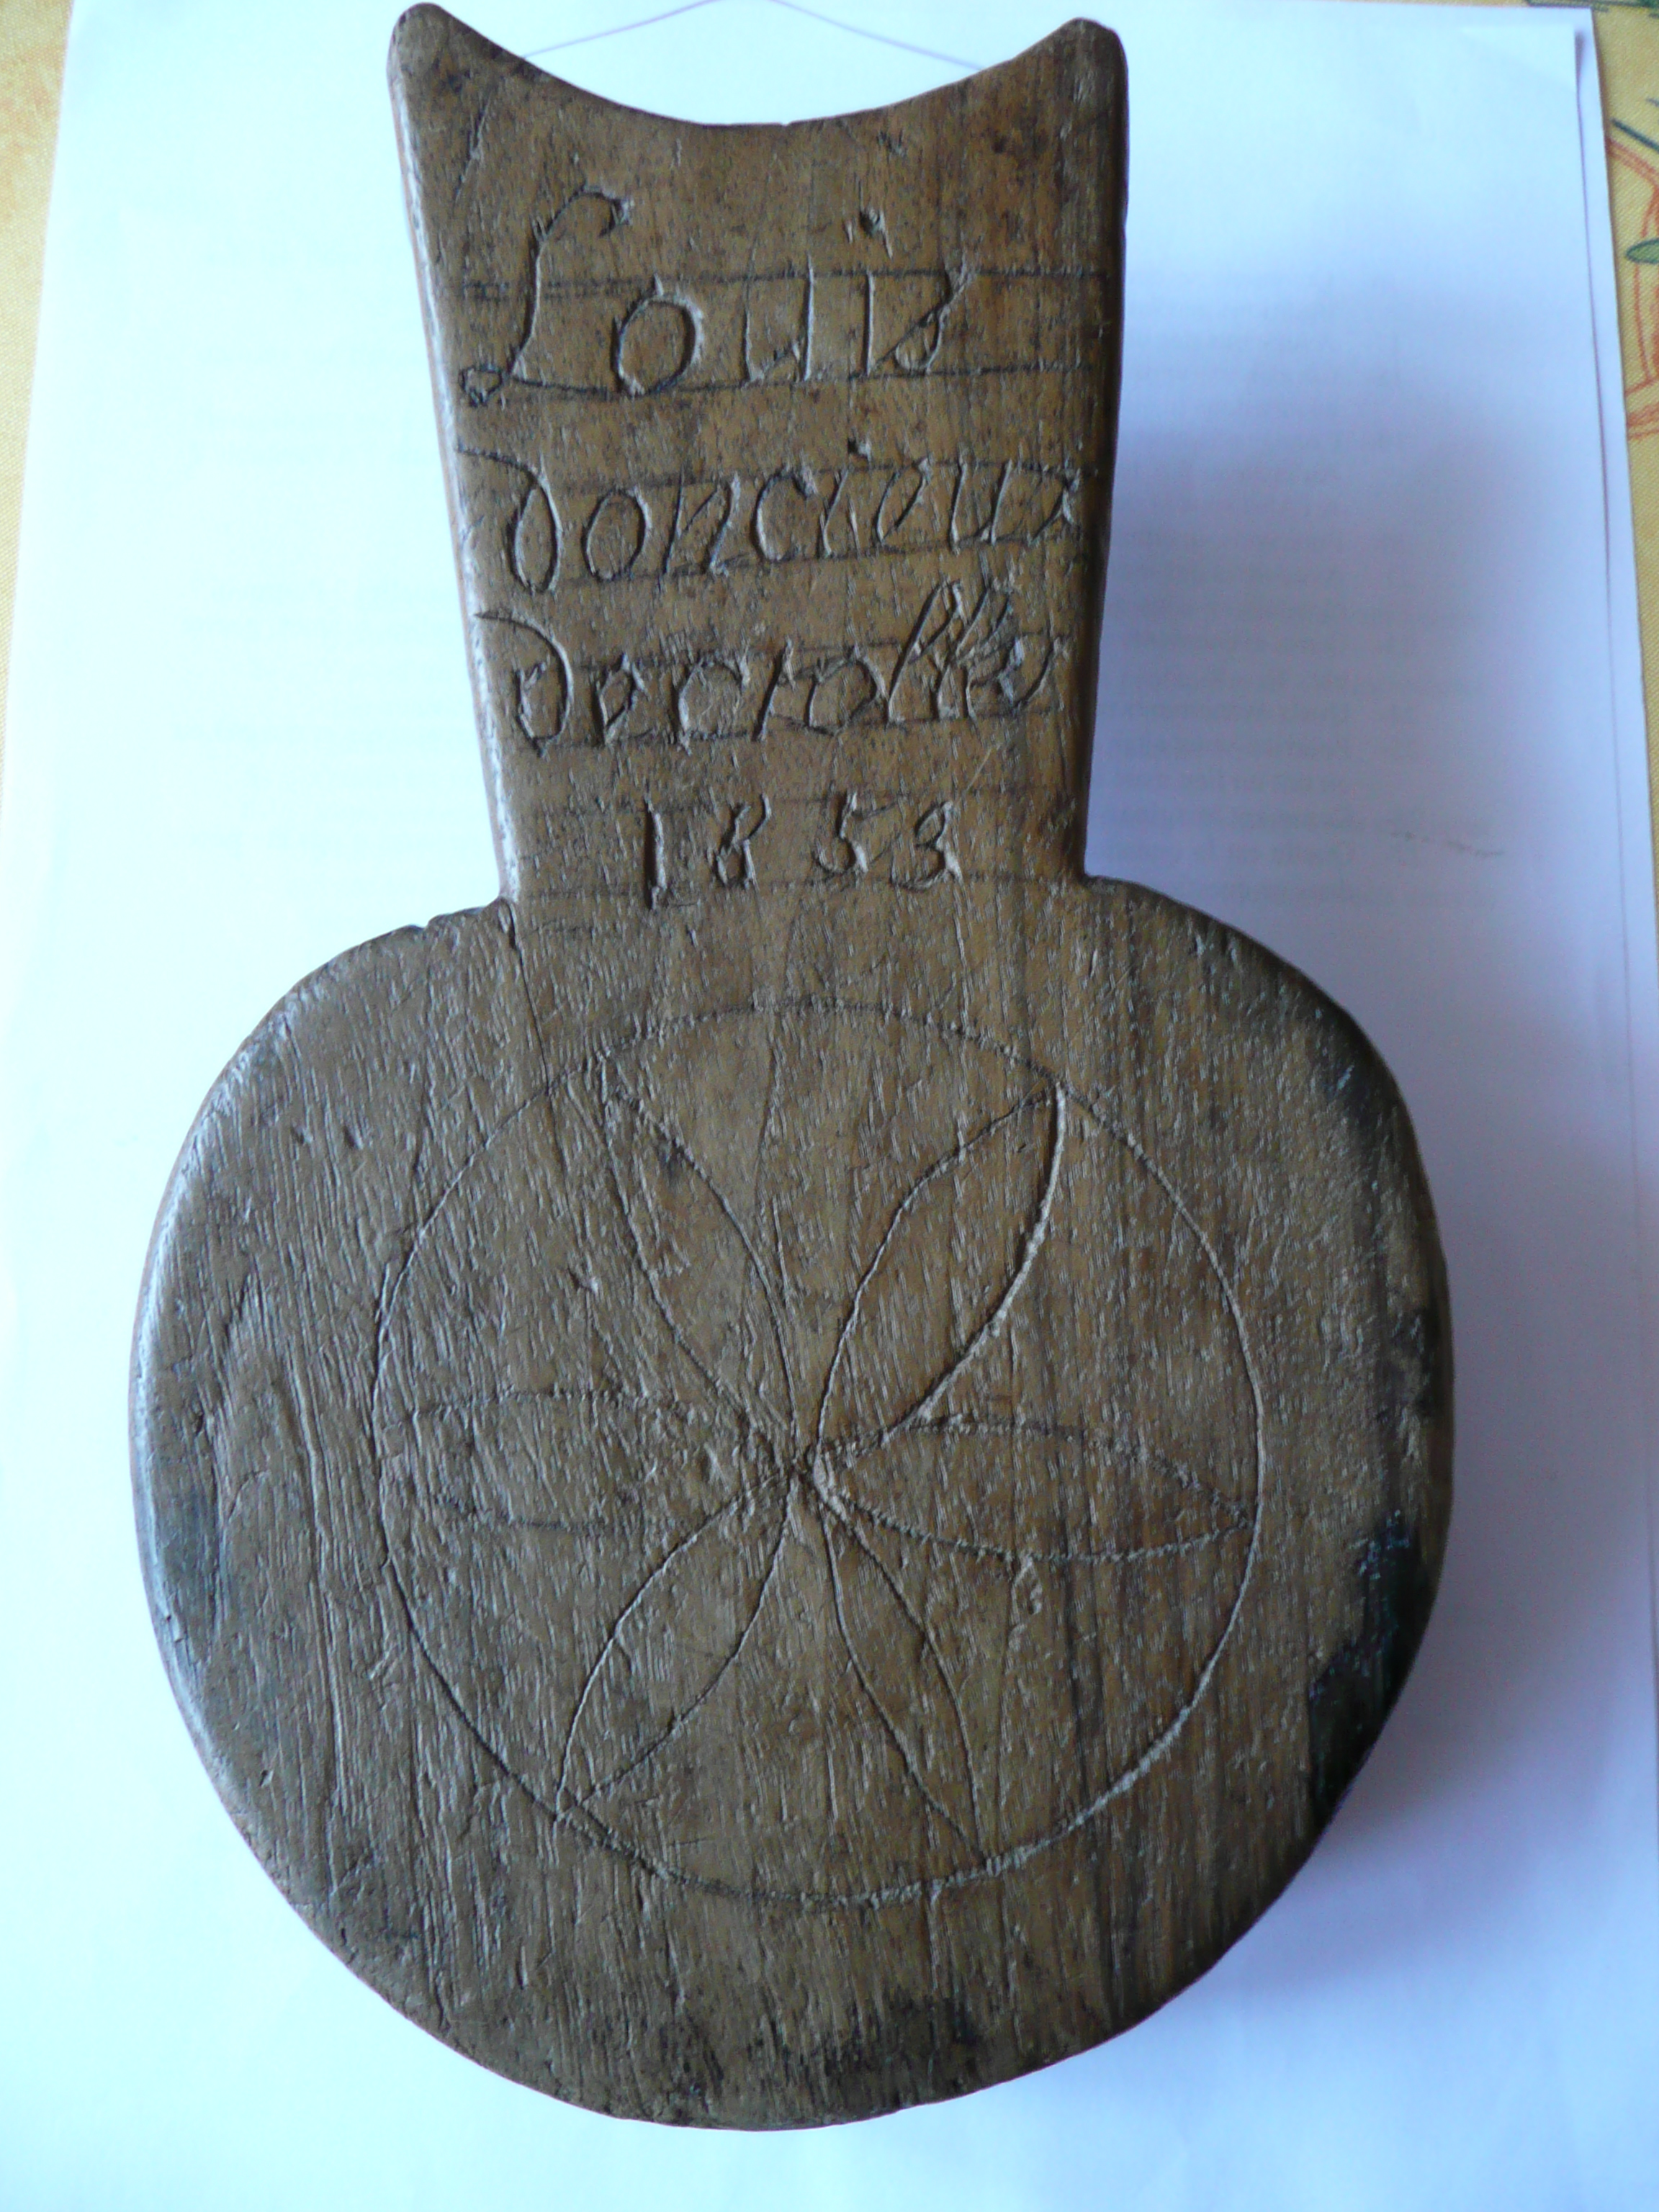 Louis
doncieux
decrolles
1853